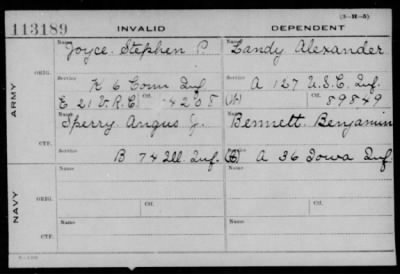 (3-H-5)
113189 INVALID DEPENDENT
Name Joyce Stephen P. Name Zandy Alexander
ORIG.
Service K 6 Conn Inf. Service A 127 U.S.C. Inf.
E 21 V.R.C. Ctf. 4205 Ctf. 89849
ARMY
Name Sperry Angus J. Name Bennett Benjamin
CTF.
Service B 74 Ill. Inf. Service A 36 Iowa Inf
Name Name
ORIG.
Ctf. Ctf.
NAVY
Name Name
CTF.